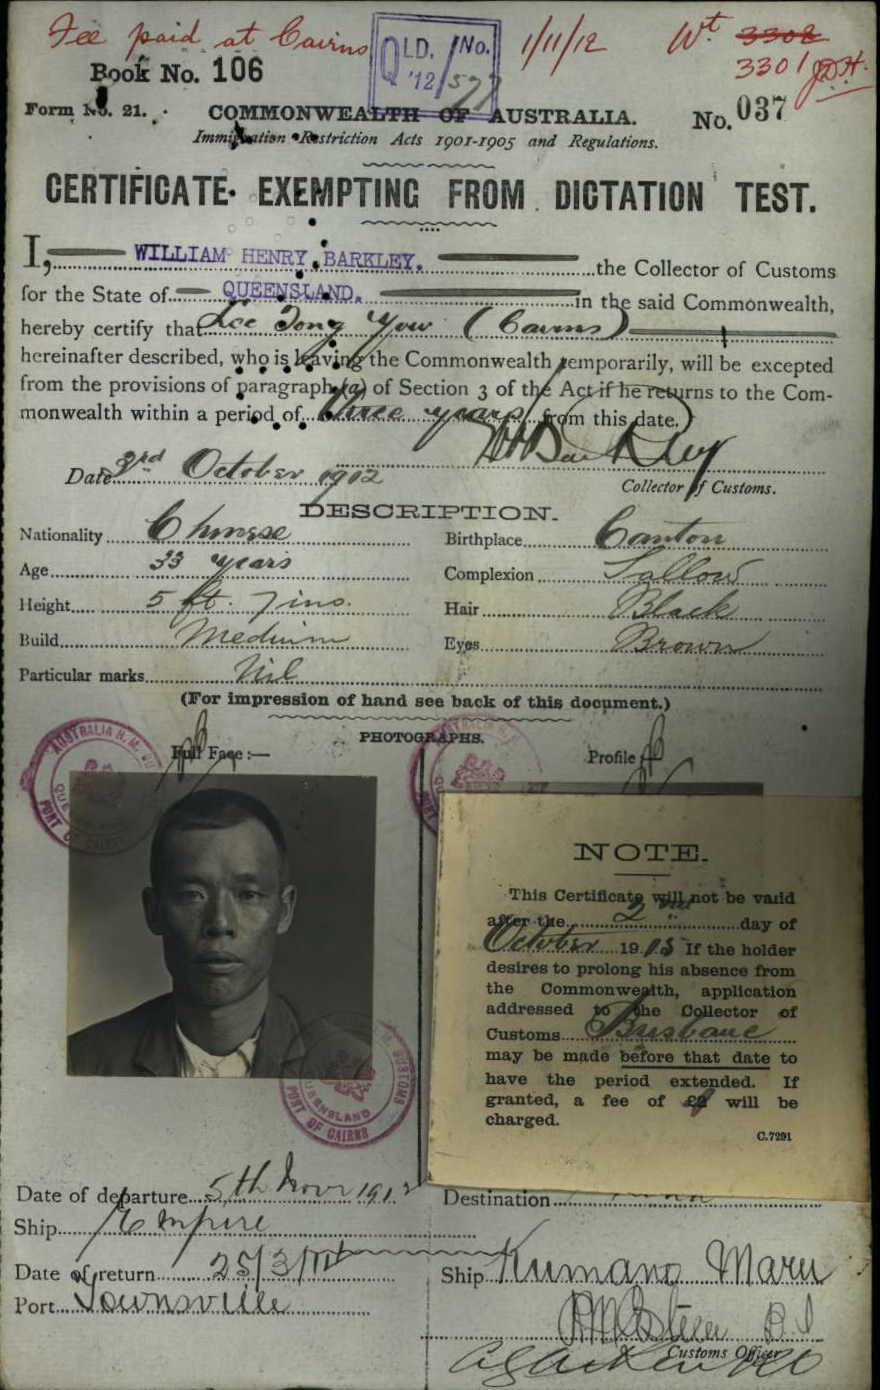 Fee paid at Cairns
QLD. No.
'12/577
1/11/12
Wt 3302
3301 J.D.H.
Book No. 106
Form No. 21.
COMMONWEALTH OF AUSTRALIA.
No. 037
Immigration Restriction Acts 1901-1905 and Regulations.
CERTIFICATE EXEMPTING FROM DICTATION TEST.
I, WILLIAM HENRY BARKLEY, the Collector of Customs
for the State of QUEENSLAND. in the said Commonwealth,
hereby certify that Lee Tong Yow (Cairns)
hereinafter described, who is leaving the Commonwealth temporarily, will be excepted
from the provisions of paragraph (a) of Section 3 of the Act if he returns to the Com-
monwealth within a period of three years from this date.
Date 3rd October 1912
Collector of Customs.
DESCRIPTION.
Nationality Chinese
Birthplace Canton
Age 33 years
Complexion Sallow
Height 5 ft. 7 ins.
Hair Black
Build Medium
Eyes Brown
Particular marks Nil
(For impression of hand see back of this document.)
PHOTOGRAPHS.
Full Face:—
Profile
PORT OF CAIRNS
NOTE.
This Certificate will not be valid
after the 2nd day of
October 1915 If the holder
desires to prolong his absence from
the Commonwealth, application
addressed to the Collector of
Customs Brisbane
may be made before that date to
have the period extended. If
granted, a fee of will be
charged.
C.7291
CUSTOMS
QUEENSLAND
PORT OF CAIRNS
Date of departure 5th Novr 1912
Destination
Ship Empire
Date of return 25/3/14
Ship Kumano Maru
Port Townsville
Customs Officer